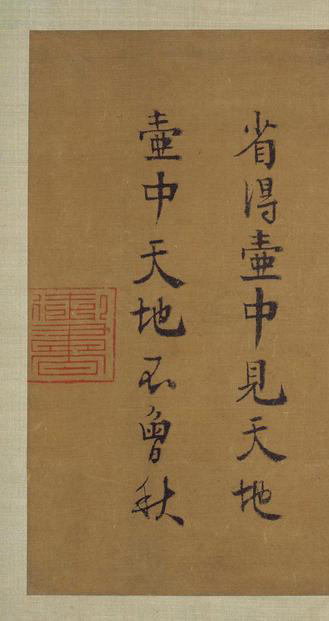 省得壺中見天地
壺中天地不曾秋
御書